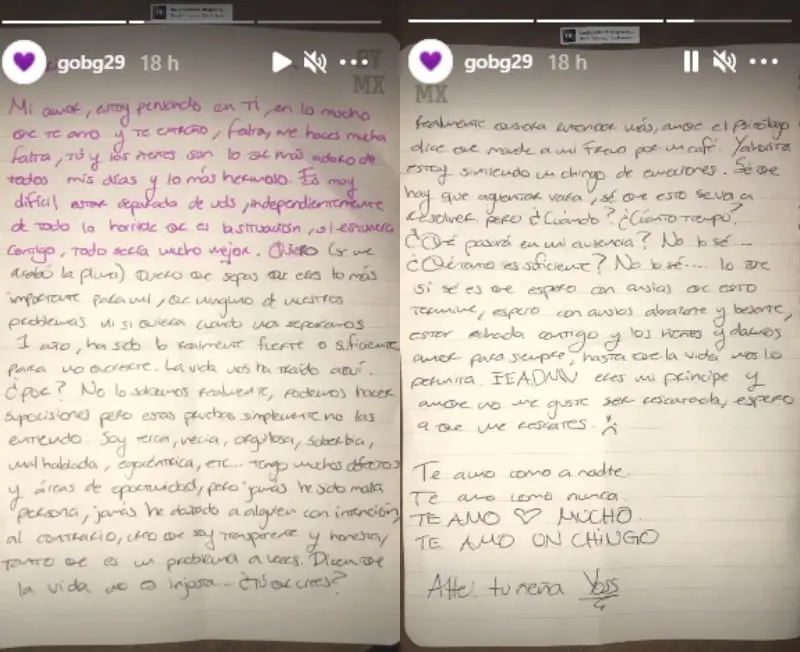 gobg29 18 h
MX
Mi amor, estoy pensando en Ti, en lo mucho
que te amo y te extraño, falta, me haces mucha
falta, tú y los nenes son lo que más adoro de
todos mis días y lo más hermoso. Es muy
difícil estar separada de uds, independientemente
de todo lo horrible que es la situación, si estuviera
contigo, todo sería mucho mejor. Quiero (se me
acabó la pluma) Quiero que sepas que eres lo más
importante para mi, que ninguno de nuestros
problemas ni si quiera cuando nos separamos
1 año, ha sido lo realmente fuerte o suficiente
para no quererte. La vida nos ha traído aquí.
¿por? No lo sabemos realmente, podemos hacer
suposiciones pero estas pruebas simplemente no las
entiendo. Soy terca, necia, orgullosa, soberbia,
mal hablada, egocéntrica, etc... tengo muchos defectos
y áreas de oportunidad, pero jamás he sido mala
persona, jamás he dañado a alguien con intención,
al contrario, creo que soy transparente y honesta,
tanto que es un problema a veces. Dicen que
la vida no es injusta... ¿Tú que crees?
gobg29 18 h
MX
Realmente quisiera entender más, aunque el psicólogo
dice que mande a mi Freud por un café. Yahorita
estoy sintiendo un chingo de emociones. Sé que
hay que aguantar vara, sé que esto se va a
resolver pero ¿Cuándo? ¿Cuánto tiempo?
¿Qué pasará en mi ausencia? No lo sé...
¿Qué tanto es suficiente? No lo sé.... lo que
si sé es que espero con ansias que esto
termine, espero con ansias abrazarte y besarte,
estar echada contigo y los nenes y darnos
amor para siempre, hasta que la vida nos lo
permita. EEADMV eres mi príncipe y
aunque no me guste ser rescatada, espero
a que me rescates. :(
Te amo como a nadie.
Te amo como nunca
TE AMO ♡ MUCHO.
TE AMO UN CHINGO
Atte: tu neña Yoss